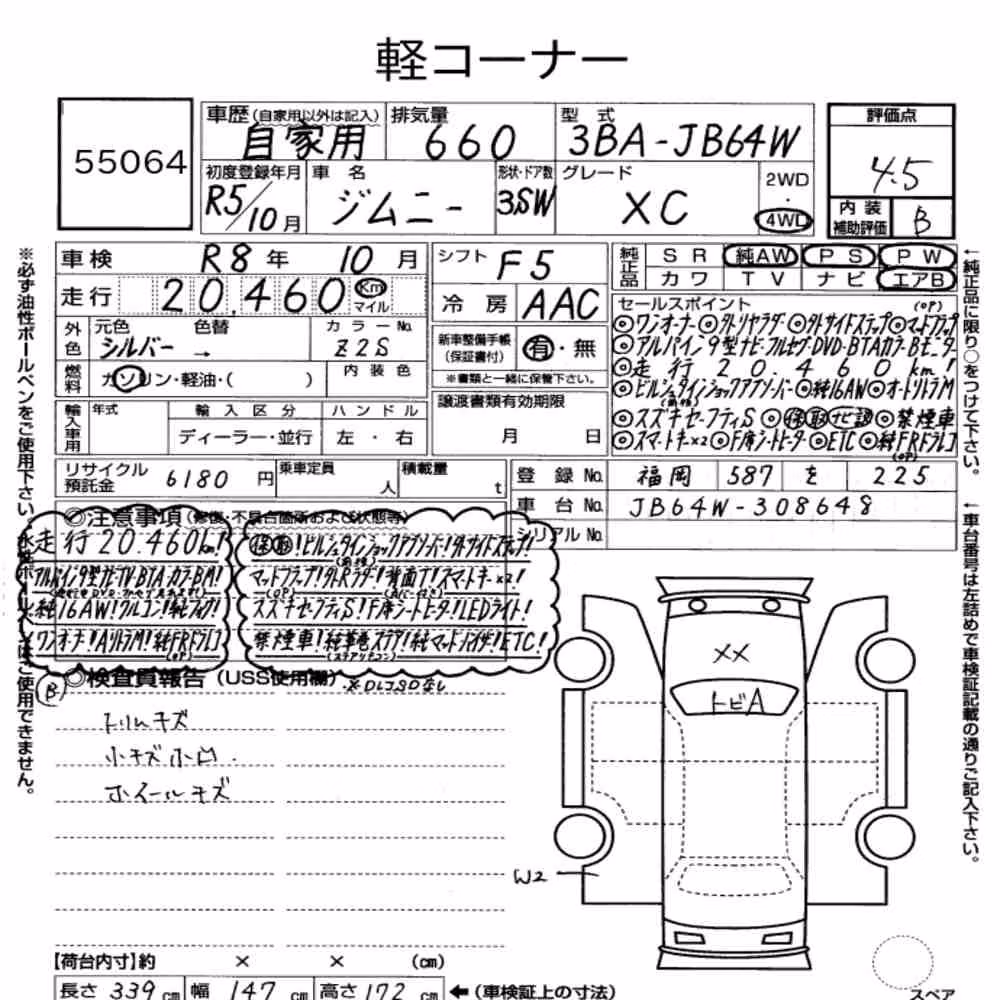 軽コーナー
55064
車歴(自家用以外は記入) 自家用
排気量 660
型式 3BA-JB64W
評価点 4.5
初度登録年月 R5/10月
車名 ジムニー
形状・ドア数 3.SW
グレード XC
2WD・4WD
内装補助評価 B
車検 R8年 10月
シフト F5
純正品 SR 純AW PS PW
カワ TV ナビ エアB
走行 20,460 Km マイル
冷房 AAC
セールスポイント
(OP)
◎ワンオーナー◎外リヤラダー◎外サイドステップ◎マッドフラップ
◎アルパイン9型ナビ・フルセグ・DVD・BTAカラーBモニター
◎走行20.460km!
◎ビルシュタインショックアブソーバー◎純16AW◎オートリトラM
(前後)
◎スズキセーフティS◎保取ナビ認◎禁煙車
◎スマートキー×2◎F席シートヒーター◎ETC◎純FRドラレコ
(OP)
外色 元色 シルバー 色替 →
カラーNo. Z2S
燃料 ガソリン・軽油・( )
内装色
新車整備手帳(保証書付) 有・無
※書類と一緒に保管下さい。
輸入車用 年式 輸入区分 ハンドル
ディーラー・並行 左・右
譲渡書類有効期限
月 日
リサイクル預託金 6180円
乗車定員 人
積載量 t
登録No. 福岡 587 を 225
車台No. JB64W-308648
シリアルNo.
◎注意事項(修復・不具合箇所および状態等)
走行20.460km!
アルパイン9型ナビ・TV・BTAカラーBM!
純16AW!ウルコン!純フォグ!
ワンオーナー!Aリトラ M!純FRドラレコ
(OP)
保取!ビルシュタインショックアブソーバー!外サイドステップ!
(前後)
マッドフラップ!外Rラダー!背面T!スマートキー×2!
(OP)
スズキセーフティS!F席シートヒーター!LEDライト!
禁煙車!純革巻ステア!純マッドバイザー!ETC!
(ステアリモコン)
B
◎検査員報告(USS使用欄)
※DLJSDなし
トリムキズ
小キズ小凹
ホイールキズ
××
トビA
W2
【荷台内寸】約 × × (cm)
長さ 339cm 幅 147cm 高さ 172cm ←(車検証上の寸法)
スペア
※必ず油性ボールペンをご使用下さい。
水性ボールペンはご使用できません。
←純正品に限り○をつけて下さい。
←車台番号は左詰めで車検証記載の通りご記入下さい。